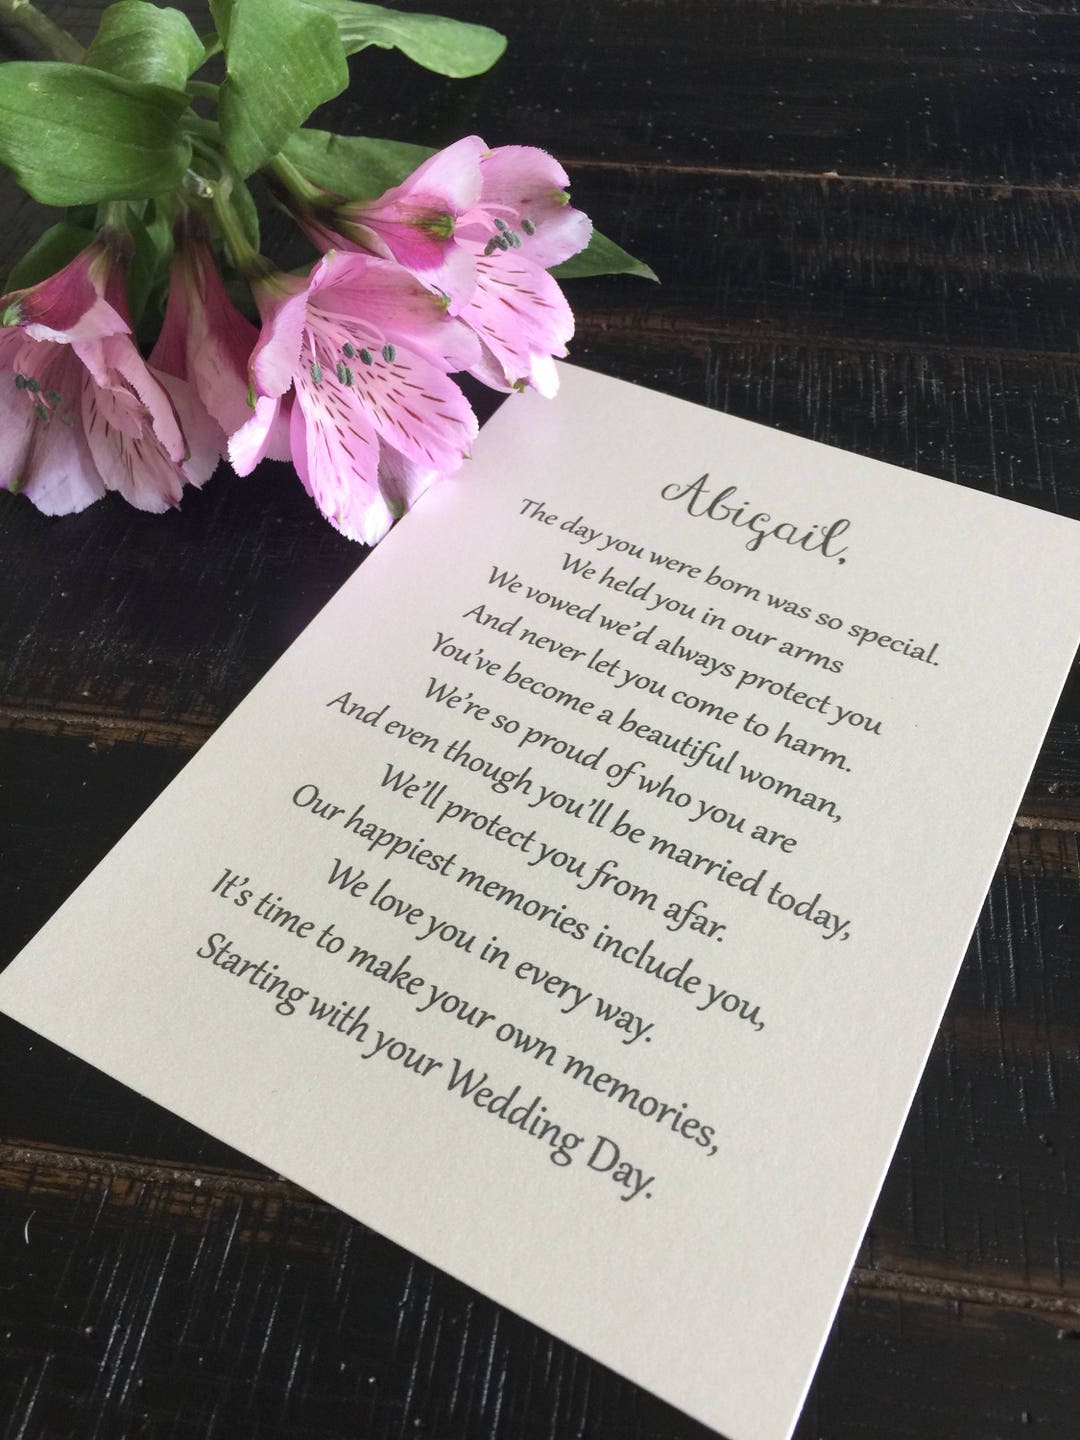 Abigail,
The day you were born was so special.
We held you in our arms
We vowed we'd always protect you
And never let you come to harm.
You've become a beautiful woman,
We're so proud of who you are
And even though you'll be married today,
We'll protect you from afar.
Our happiest memories include you,
We love you in every way.
It's time to make your own memories,
Starting with your Wedding Day.